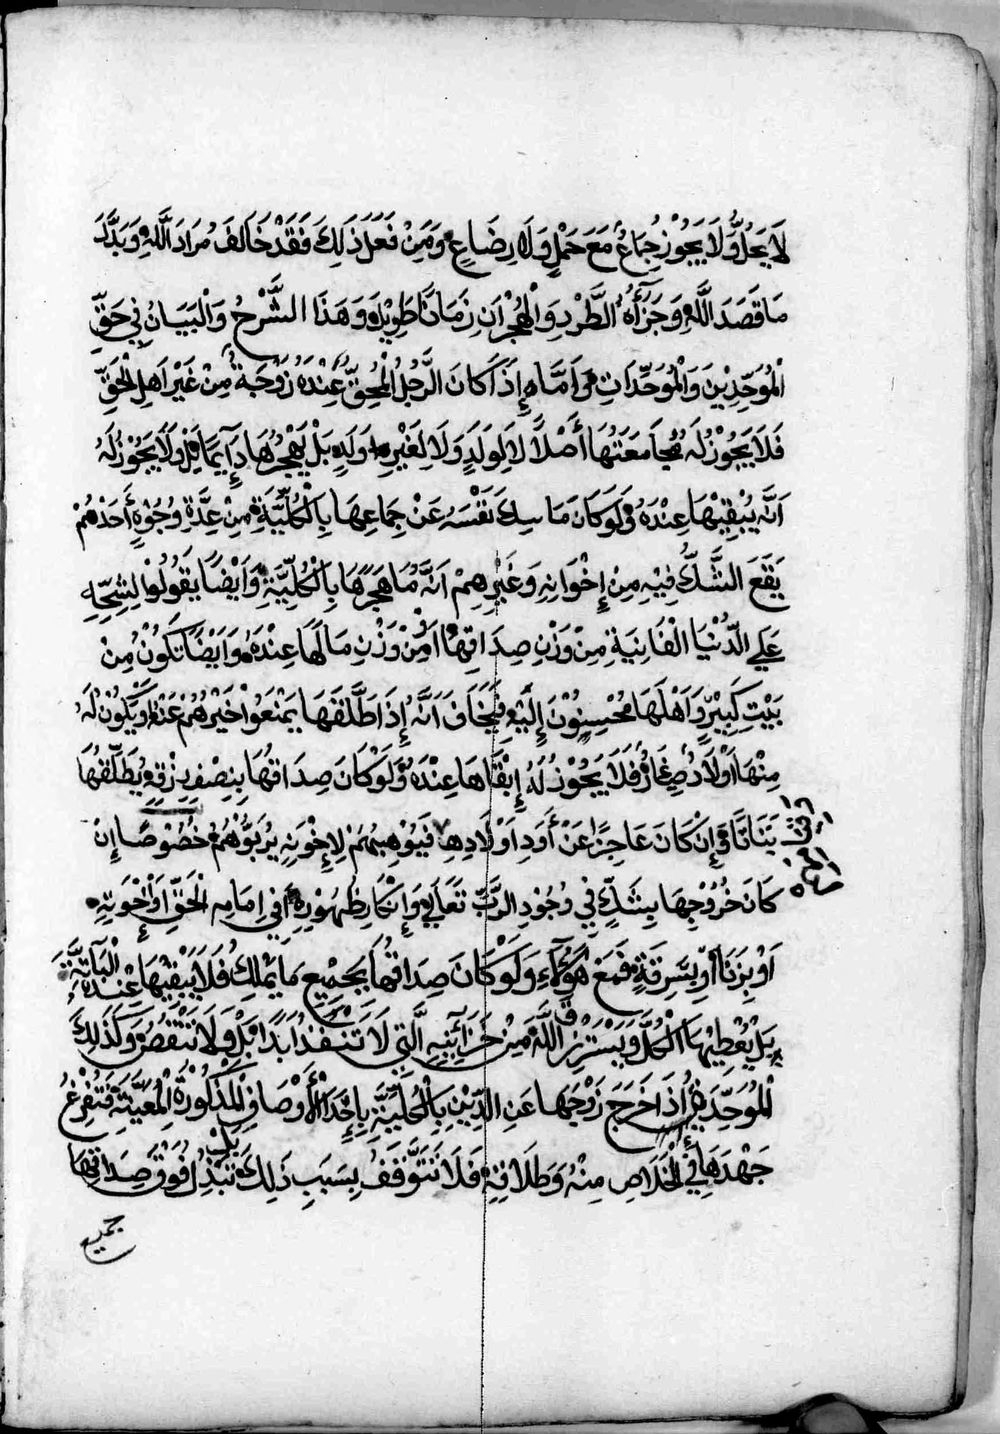 لَا يَحُلُّ وَلَا يَجُوْزُ جِمَاعُ مَعَ حَمْلٍ وَلَا رِضَاعٍ وَمَنْ فَعَلَ ذَلِكَ فَقَدْ خَالَفَ مُرَادَ اللَّهِ وَبَدَّدَ
مَا قَصَدَ اللَّهِ وَجَزَآؤُهُ الطَّرْدِ وَالْهُجْرَانِ زَمَانًا طَوِيْلَةً وَهَذَا الشَّرْحُ وَالْبَيَانُ فِي حَقِّ
الْمُوَحِّدِيْنَ وَالْمُوَحِّدَاتِ وَأَمَّا إِذَا كَانَ الرَّجُلُ الْمُحِقُّ عِنْدَهُ زَوْجَةٌ مِنْ غَيْرِ اَهِلِ الْحَقِّ
فَلَا يَجُوْزُ لَهُ مُجَامَعَتُهَا أَصْلًا لَا لِوَلَدٍ وَلَا لِغَيْرِ وَلَدٍ بَلْ يَهْجُرُهَا دَآيِمًا وَلَا يَجُوْزُ لَهُ
اَنَّهُ يُبْقِيْهَا عِنْدَهُ وَلَوْ كَانَ مَاسِكَ نَفْسَهُ عَنْ جِمَاعِهَا بِالْكُلِّيَّةِ مِنْ عِدَّةِ وُجُوْهٍ أَحَدُهُمْ
يَقَعَ الشَّكُّ فِيْهِ مِنْ إِخْوَانِهِ وَغَيْرِهِمْ اَنَّهُ مَا هَجَرَهَا بِالْكُلِّيَّةِ وَأَيْضًا يَقُوْلُوْا لِشِحِّهِ
عَلَى الدُّنْيَا الْفَانِيَةِ مِنْ وَزْنِ صِدَاقِهَا اَوْ مِنْ وَزْنِ مَا لَهَا عِنْدَهُ وَاَيْضًا تَكُوْنُ مِنْ
بَيْتٍ كَبِيْرٍ وَاَهْلَهَا مُحْسِنُوْنَ إِلَيْهِ فَيَخَافَ اَنَّهُ إِذَا طَلَّقَهَا يَمْنَعُوْا خَيْرَهُمْ عَنْهُ اَوْ يَكُوْنُ لَهُ
مِنْهَا اَوْلَادٌ صِغَارٌ فَلَا يَجُوْزُ لَهُ إِبْقَاهَا عِنْدَهُ وَلَوْ كَانَ صِدَاقُهَا بِنِصْفِ رِزْقِهِ يُطَلِّقُهَا
بَتَاتًا وَإِنْ كَانَ عَاجِزًا عَنْ أَوَدِ اَوْلَادِهِ فَيُوْهِبُهُمْ لِإِخْوَتِهِ يُرَبُّوْهُمْ خُصُوْصًا إِنْ
كَانَ خُرُوْجِهَا بِشَكٍّ فِيْ وُجُوْدِ الرَّبِّ تَعَالَى وَإِنْكَارِ ظُهُوْرِهِ اَوْ فِي اِمَامِهِ الْحَقِّ اَوْ إِخْوَتِهِ
اَوْ بِزِنَا اَوْ بِسَرِقَةٍ فَمَعَ هَؤُلَآءِ وَلَوْ كَانَ صِدَاقُهَا بِجَمِيْعِ مَا يَمْلِكُ فَلَا يُبْقِيْهَا عِنْدَهُ الْبَاتَّةَ
بَلْ يُعْطِيْهَا الْكُلَّ وَيَسْتَرْزِقُ اللَّهَ مِنْ خَزَآئِنِهِ الَّتِي لَا تَنْفَدُ اَبَدًا وَلَا تَنْقُصُ وَكَذَلِكَ
الْمُوَحِّدَةِ إِذَا خَرَجَ زَوْجُهَا عَنِ الدِّيْنِ بِالْكُلِّيَّةِ بِإِحْدَا الْأَوْصَافِ الْمَذْكُوْرَةِ الْمُعَيَّنَةِ فَتُفْرِغُ
جَهْدَهَا فِي الْخَلَاصِ مِنْهُ وَطَلَاقِهِ فَلَا تَتَوَقَّفَ بِسَبَبِ ذَلِكَ بَلْ تَبْذِلُ فَوْقَ صِدَاقِهَا
جميع